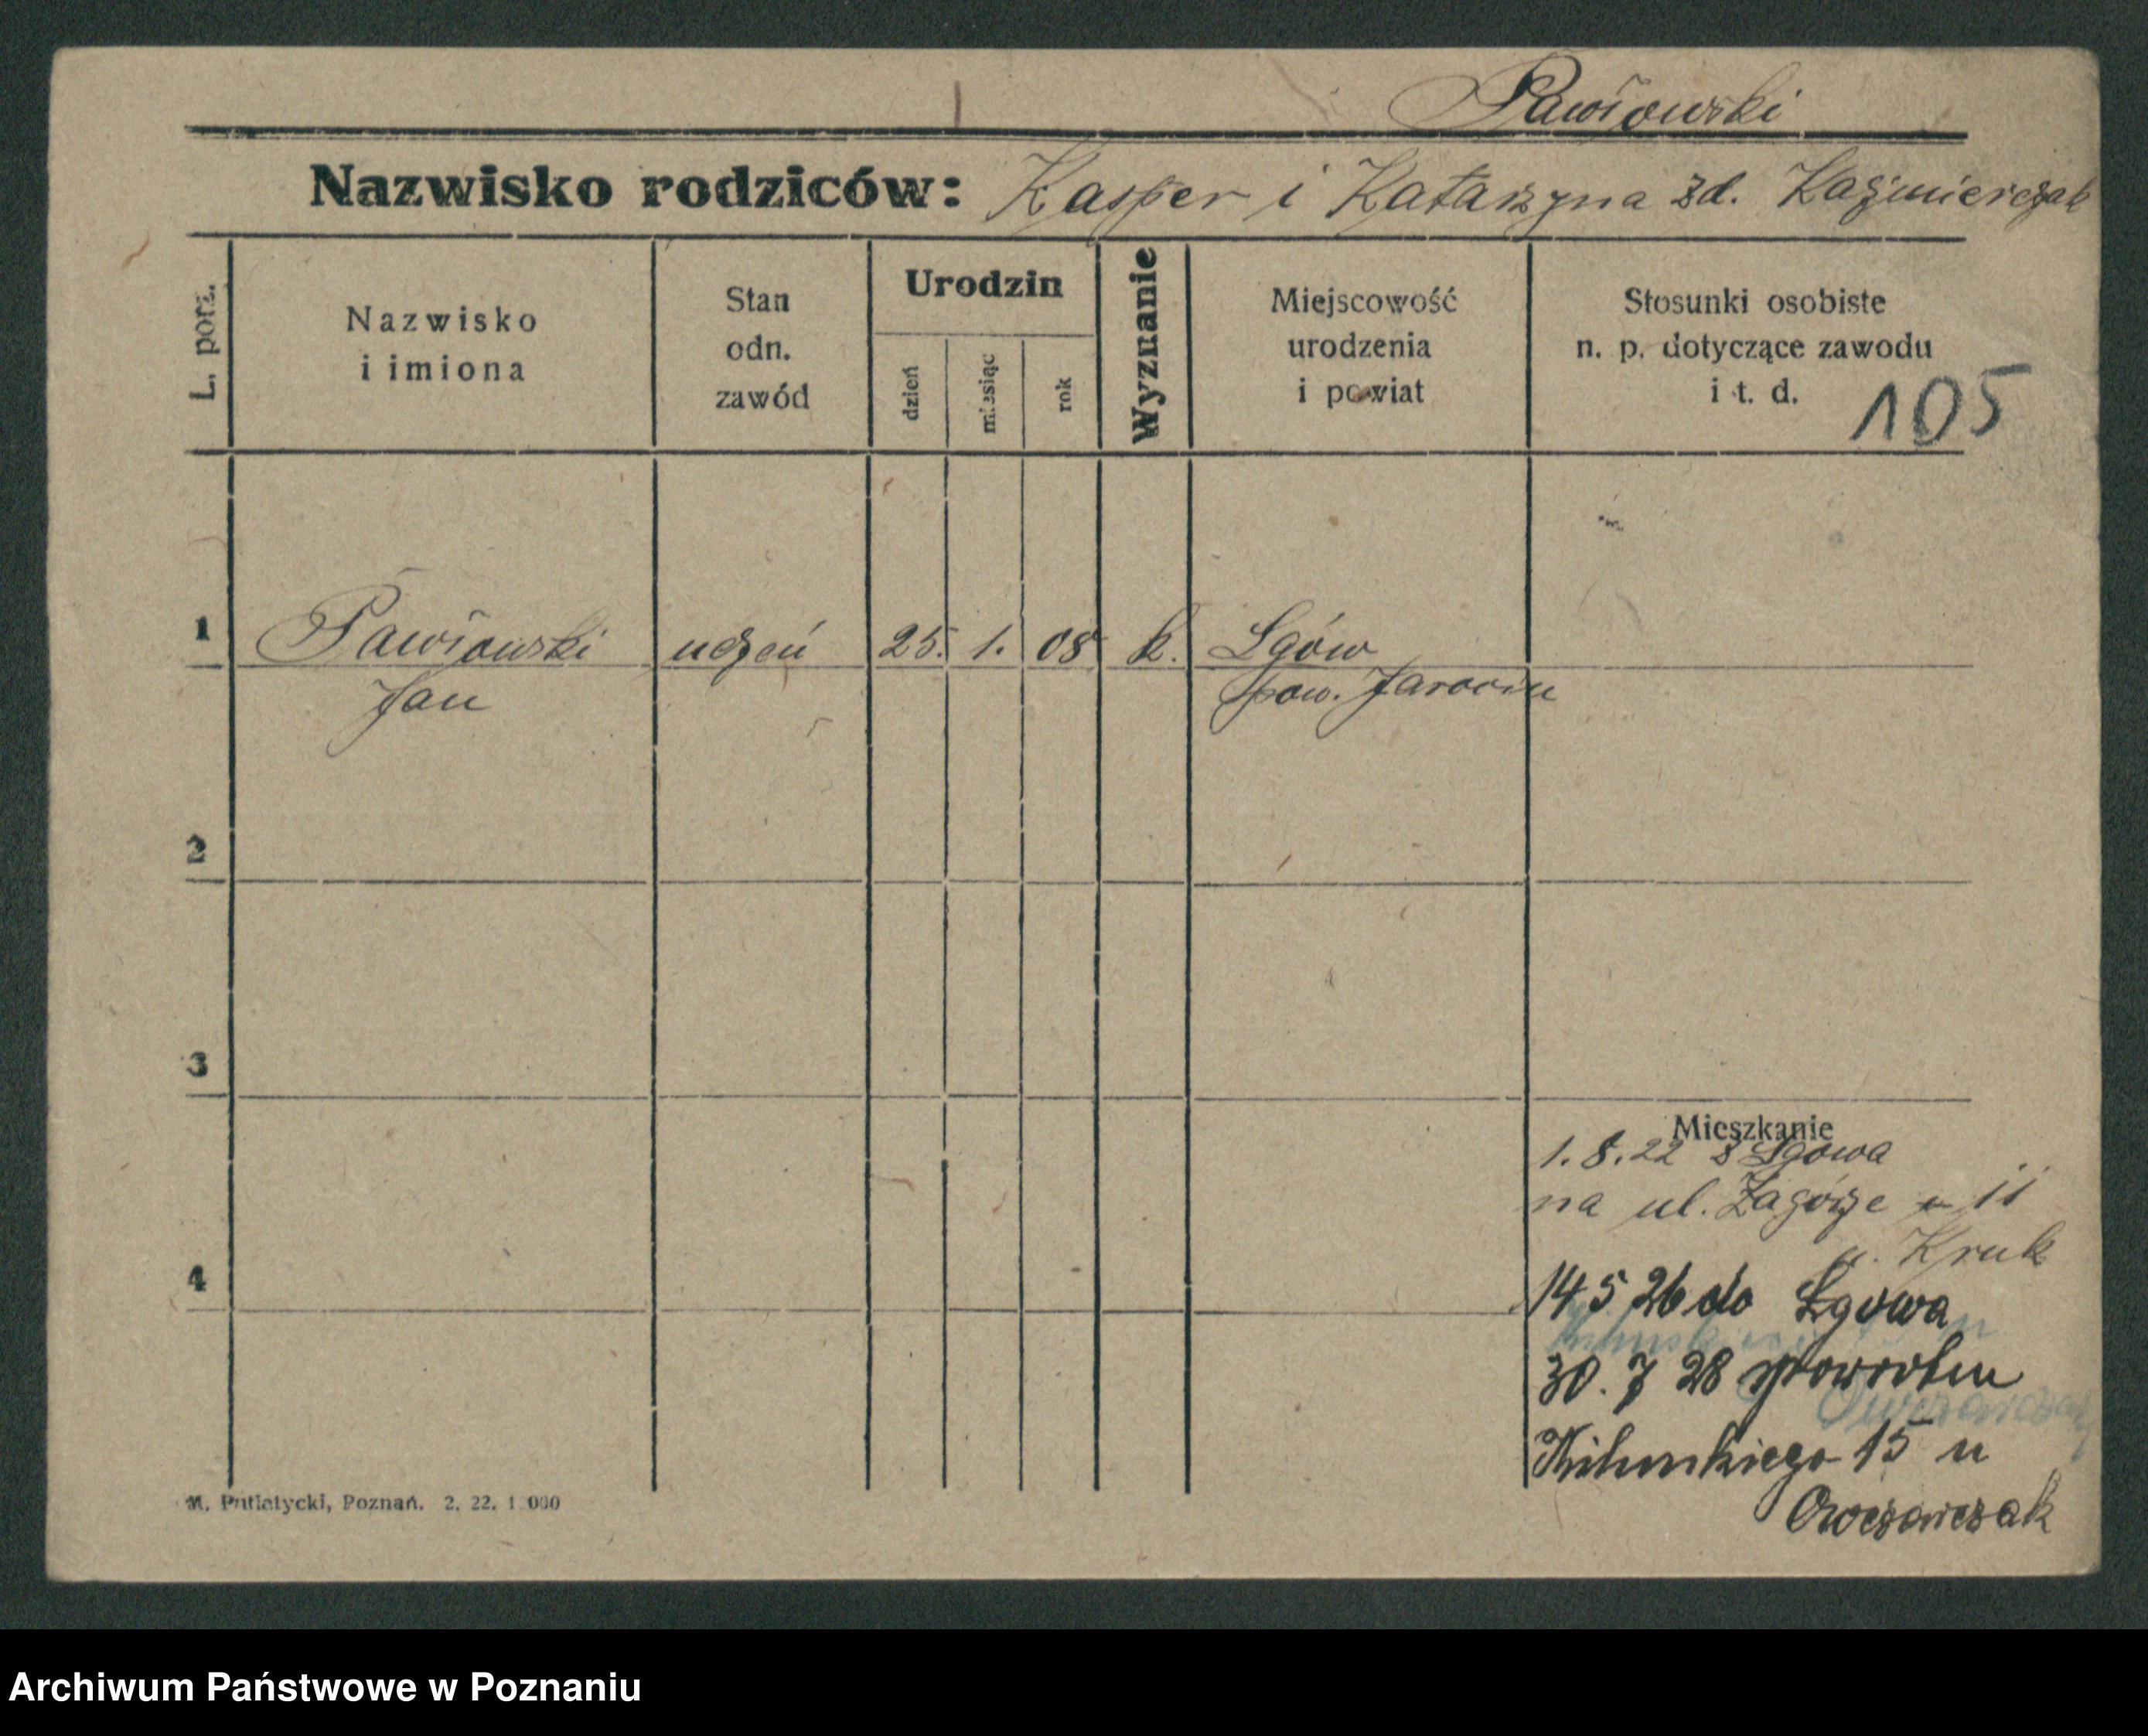 Pawłowski
Nazwisko rodziców: Kasper i Katarzyna zd. Kaźmierczak
L. porz.
Nazwisko
i imiona
Stan
odn.
zawód
Urodzin
dzień
miesiąc
rok
Wyznanie
Miejscowość
urodzenia
i powiat
Stosunki osobiste
n. p. dotyczące zawodu
i t. d.
105
1
Pawłowski
Jan
uczeń
25.
1.
08
k.
Lgów
pow. Jarocin
2
3
4
Mieszkanie
1.8.22 z Lgowa
na ul. Zagórze 11
u. Kruk
14 5 26 do Lgowa
30. 7 28 powrotem
Kilinskiego 15 u
Owczarczak
M. Putiatycki, Poznań. 2. 22. 1 000
Archiwum Państwowe w Poznaniu